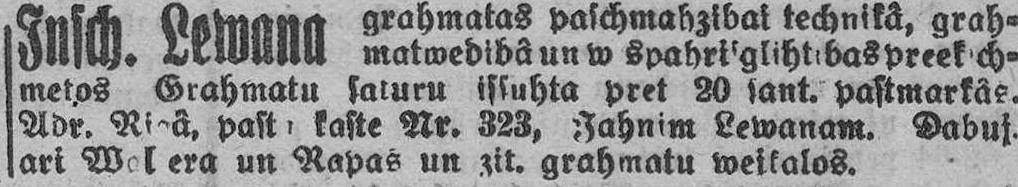 Insch. Lewana grahmatas paschmahzibai technikâ, grah-
matwedibâ un w spahrigâ iglihtibas preeksch-
metos Grahmatu saturu issuhta pret 20 sant. pastmarkâs.
Adr. Rigâ, pasta kaste Nr. 323, Jahnim Lewanam. Dabuj.
ari Waltera un Rapas un zit. grahmatu weikalos.